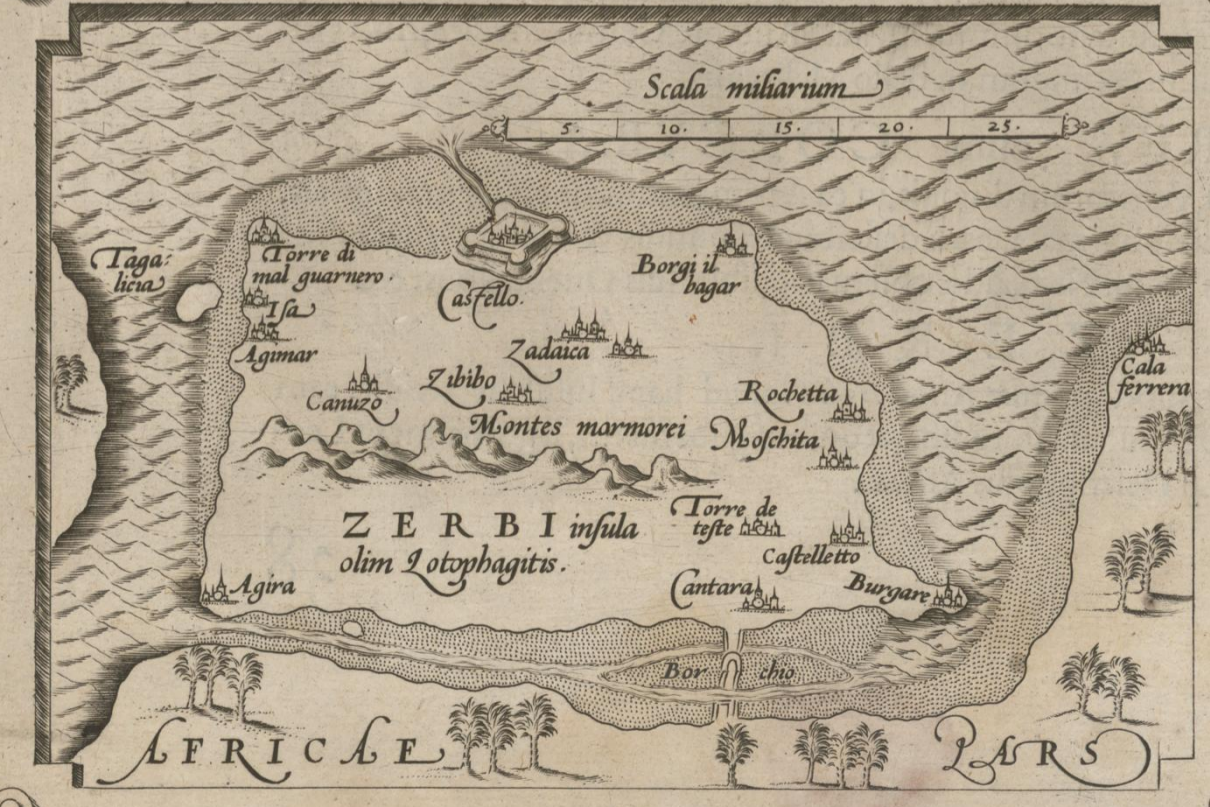 Scala miliarium
5. 10. 15. 20. 25.
Taga:
licia
Torre di
mal guarnero.
Isa
Agimar
Castello.
Borgi il
bagar
Zadaica
Cala
ferrera
Canuzo
Zibibo
Rochetta
Montes marmorei
Moschita
ZERBI insula
olim Lotophagitis.
Torre de
teste
Castelletto
Agira
Cantara
Burgare
Bor chio
AFRICAE PARS